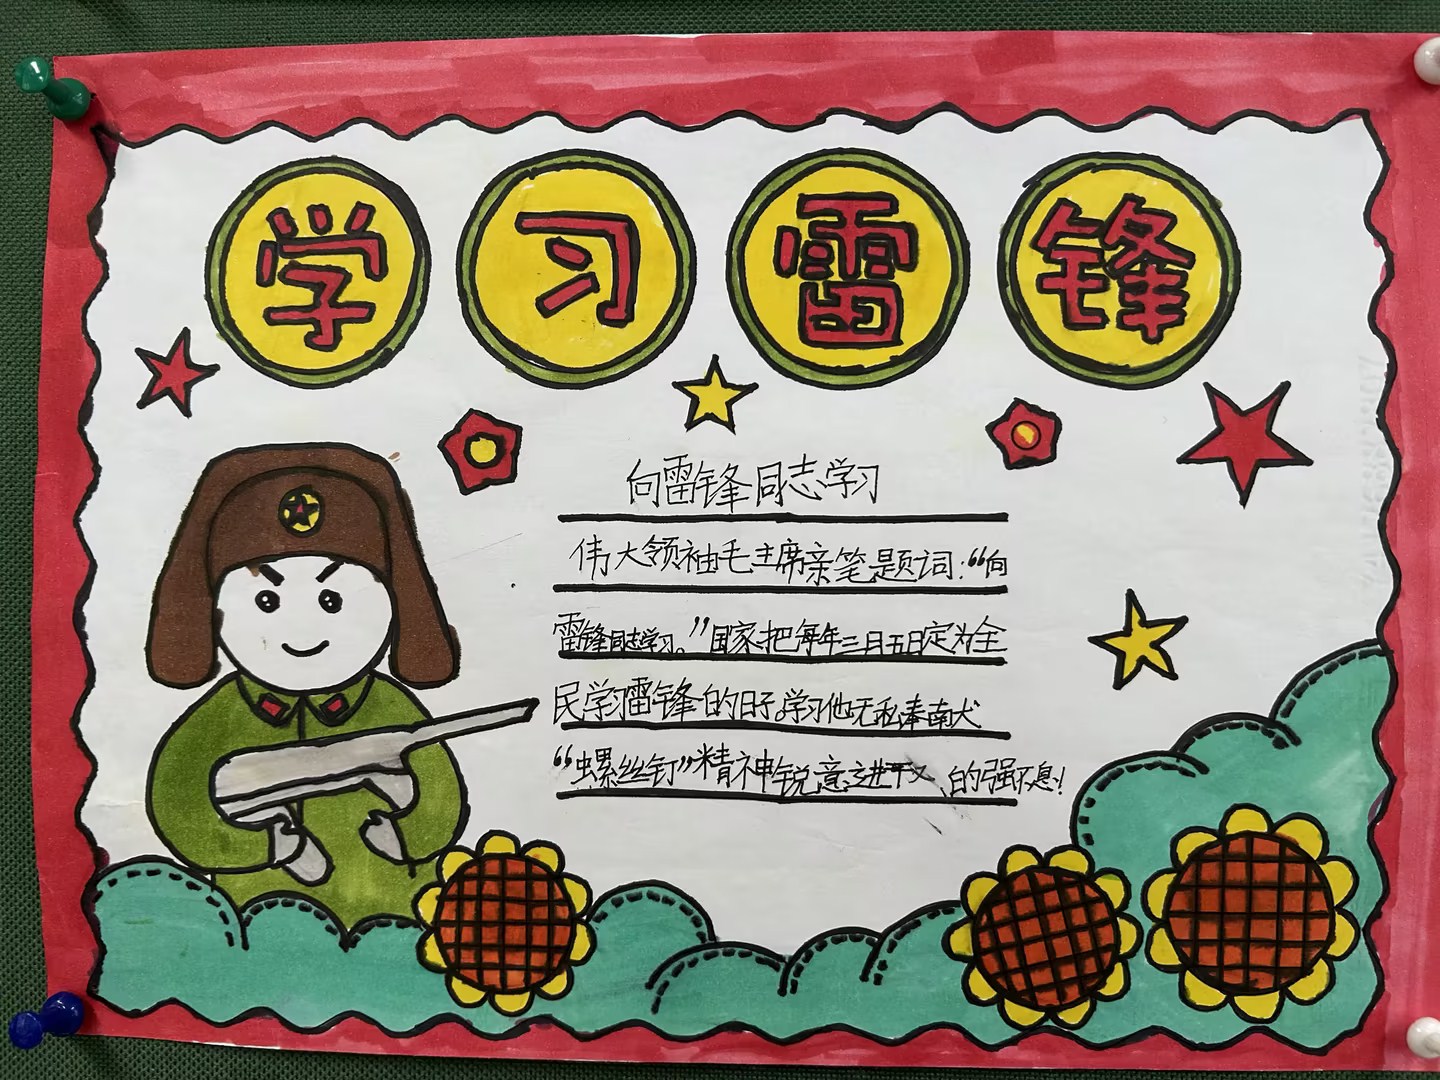 学习雷锋
向雷锋同志学习
伟大领袖毛主席亲笔题词:“向
雷锋同志学习。”国家把每年三月五日定为全
民学习雷锋的日子。学习他无私奉南犬
“螺丝钉”精神锐意进取的强不息!